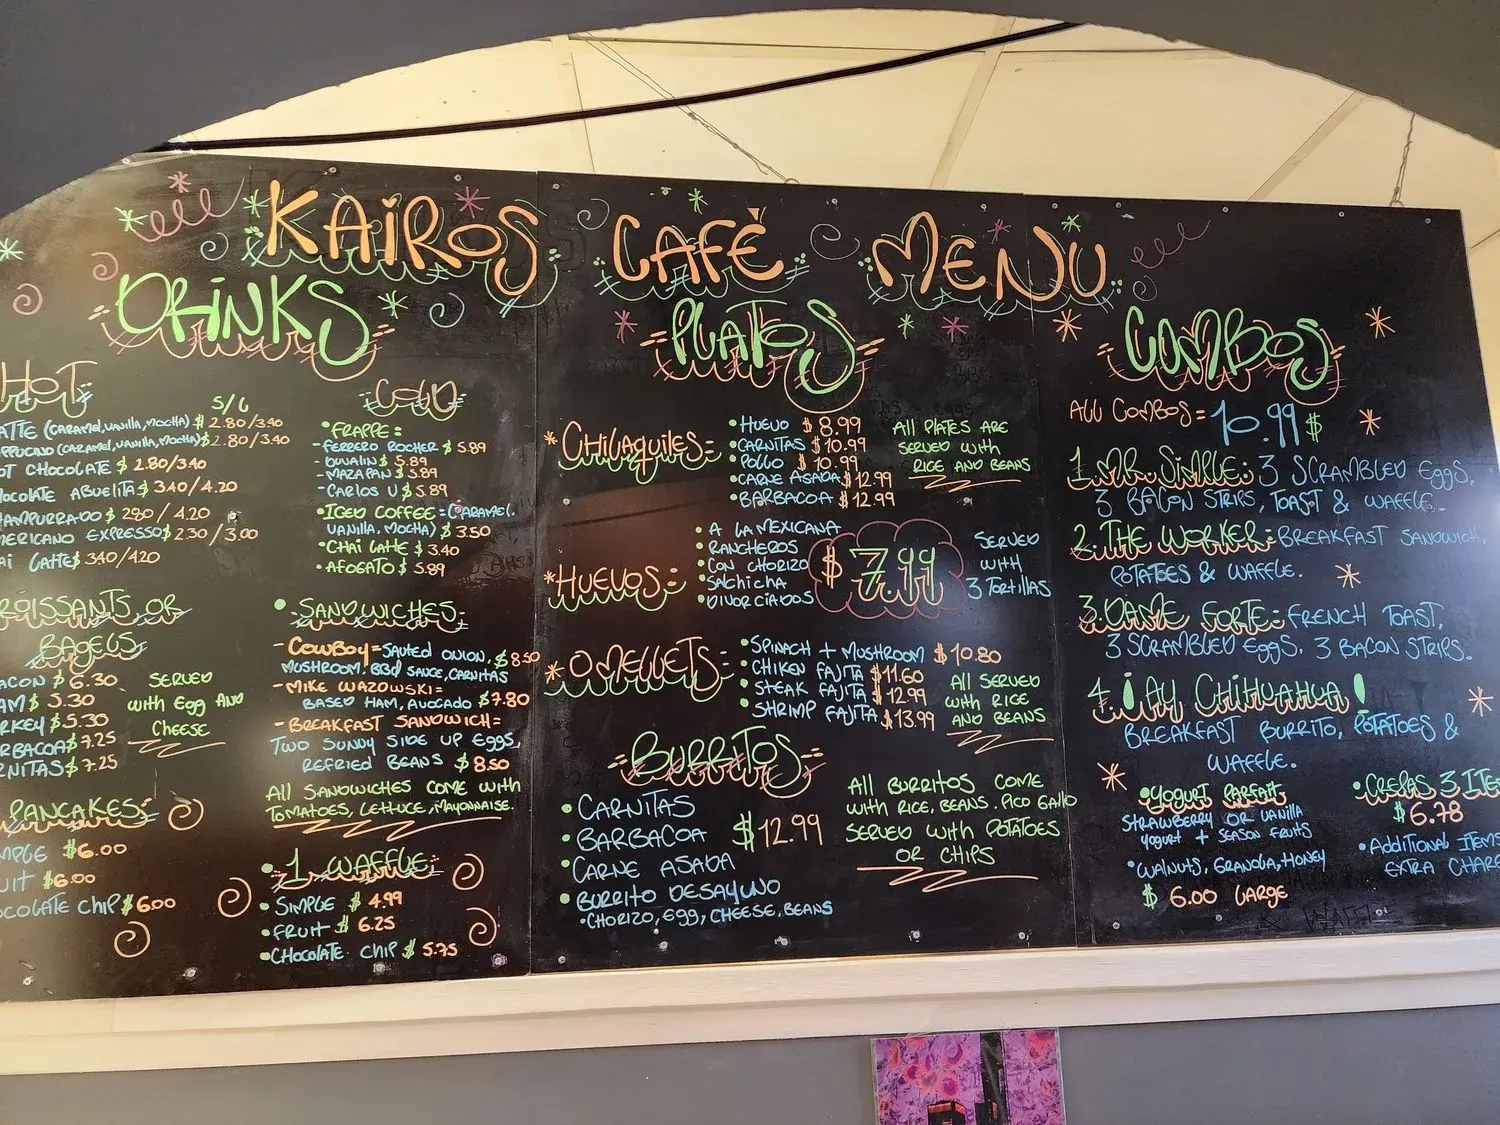 KAIROS CAFÈ MENU
DRINKS
HOT
S/L
ATTE (CARAMEL, VANILLA, MOCHA) $ 2.80/3.40
PPUCINO (CARAMEL, VANILLA, MOCHA) $ 2.80/3.40
OT CHOCOLATE $ 2.80/3.40
HOCOLATE ABUELITA $ 3.40/4.20
HAMPURRADO $ 2.80/4.20
MERICANO EXPRESSO $ 2.30/3.00
AI LATTE $ 3.40/4.20
COLD
• FRAPPE =
- FERRERO ROCHER $ 5.89
- DUVALIN $ 5.89
- MAZAPAN $ 5.89
- CARLOS V $ 5.89
• ICED COFFEE = (CARAMEL,
VANILLA, MOCHA) $ 3.50
• CHAI LATTE $ 3.40
• AFOGATO $ 5.89
ROISSANTS OR
BAGELS
ACON $ 6.30
AM $ 5.30
RKEY $ 5.30
RBACOA $ 7.25
RNITAS $ 7.25
SERVED
WITH EGG AND
CHEESE
PANCAKES:
MPLE $6.00
UIT $6.00
OCOLATE CHIP $ 6.00
• SANDWICHES:
- COWBOY = SAUTED ONION, $ 8.50
MUSHROOM, BBQ SAUCE, CARNITAS
- MIKE WAZOWSKI =
BASED HAM, AVOCADO $ 7.80
- BREAKFAST SANDWICH =
TWO SUNDY SIDE UP EGGS,
REFRIED BEANS $ 8.50
ALL SANDWICHES COME WITH
TOMATOES, LETTUCE, MAYONNAISE.
• 1 WAFFLE:
• SIMPLE $ 4.99
• FRUIT $ 6.25
• CHOCOLATE CHIP $ 5.75
PLATOS
* CHILAQUILES =
• HUEVO $ 8.99
• CARNITAS $ 10.99
• POLLO $ 10.99
• CARNE ASADA $ 12.99
• BARBACOA $ 12.99
All PLATES ARE
SERVED WITH
RICE AND BEANS
* HUEVOS =
• A LA MEXICANA
• RANCHEROS
• CON CHORIZO
• SALCHICHA
• DIVORCIADOS
$ 7.99
SERVED
WITH
3 TORTILLAS
* OMELLETS =
• SPINACH + MUSHROOM $ 10.80
• CHIKEN FAJITA $ 11.60
• STEAK FAJITA $ 12.99
• SHRIMP FAJITA $ 13.99
All SERVED
WITH RICE
AND BEANS
BURRITOS
• CARNITAS
• BARBACOA
• CARNE ASADA
• BURRITO DESAYUNO
• CHORIZO, EGG, CHEESE, BEANS
$ 12.99
All BURRITOS COME
WITH RICE, BEANS, PICO GALLO
SERVED WITH POTATOES
OR CHIPS
COMBOS
All COMBOS = 10.99 $
1. MR. SIMPLE: 3 SCRAMBLED EGGS,
3 BACON STRIPS, TOAST & WAFFLE.
2. THE WORKER: BREAKFAST SANDWICH,
POTATOES & WAFFLE.
3. DAME FORTE: FRENCH TOAST,
3 SCRAMBLED EGGS, 3 BACON STRIPS.
4. ¡AY CHIHUAHUA!
BREAKFAST BURRITO, POTATOES &
WAFFLE.
• YOGURT PARFAIT
STRAWBERRY OR VANILLA
YOGURT + SEASON FRUITS
• WALNUTS, GRANOLA, HONEY
$ 6.00 LARGE
• CREPAS 3 ITE
$ 6.78
• ADDITIONAL ITEMS
EXTRA CHAR